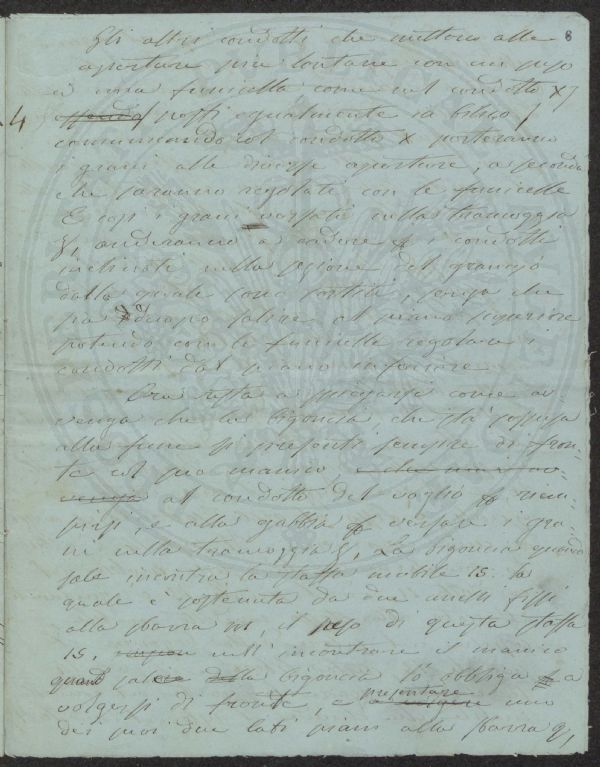 8
Gli altri condotti che mettono alle
aperture più lontane con un peso
ed una funicella come nel condotto x
4 essendo posti egualmente in bilico
comunicando col condotto x porteranno
i grani alle diverse aperture, a seconda
che saranno regolati con le funicelle
E così i grani versati nella tramoggia
anderanno a cadere i condotti
inclinati nella sezione del granajo
dalla quale sono sortiti, senza che
sia d'uopo salire al piano superiore
potendo con le funicelle regolare i
condotti dal piano inferiore
Ora resta a spiegarsi come av
venga che la bigoncia, che sta sospesa
alla fune si presenti sempre di fron-
te col suo manico e che non av-
venga al condotto del vaglio riem-
pirsi, e alla gabbia versare i gra-
ni nella tramoggia. La bigoncia quando
sale incontra la staffa mobile 15. la
quale è sostenuta da due anelli fissi
alla sbarra m, il peso di questa staffa
15, nell'incontrare il manico
quando sale della bigoncia lo obbliga a
volgersi di fronte, e presentare uno
dei suoi due lati piani alla sbarra q,